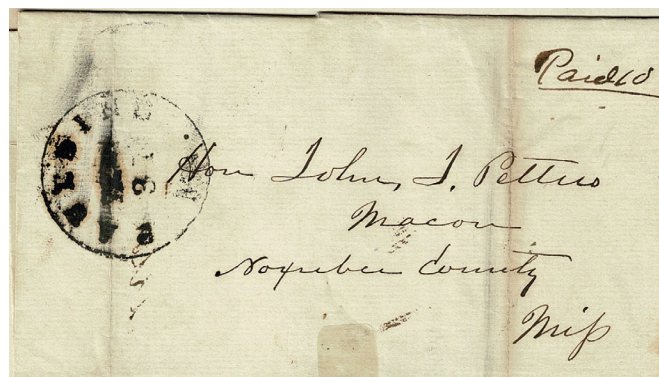 Paid 10
Hon John J. Pettus
Macon
Noxubee County
Miss